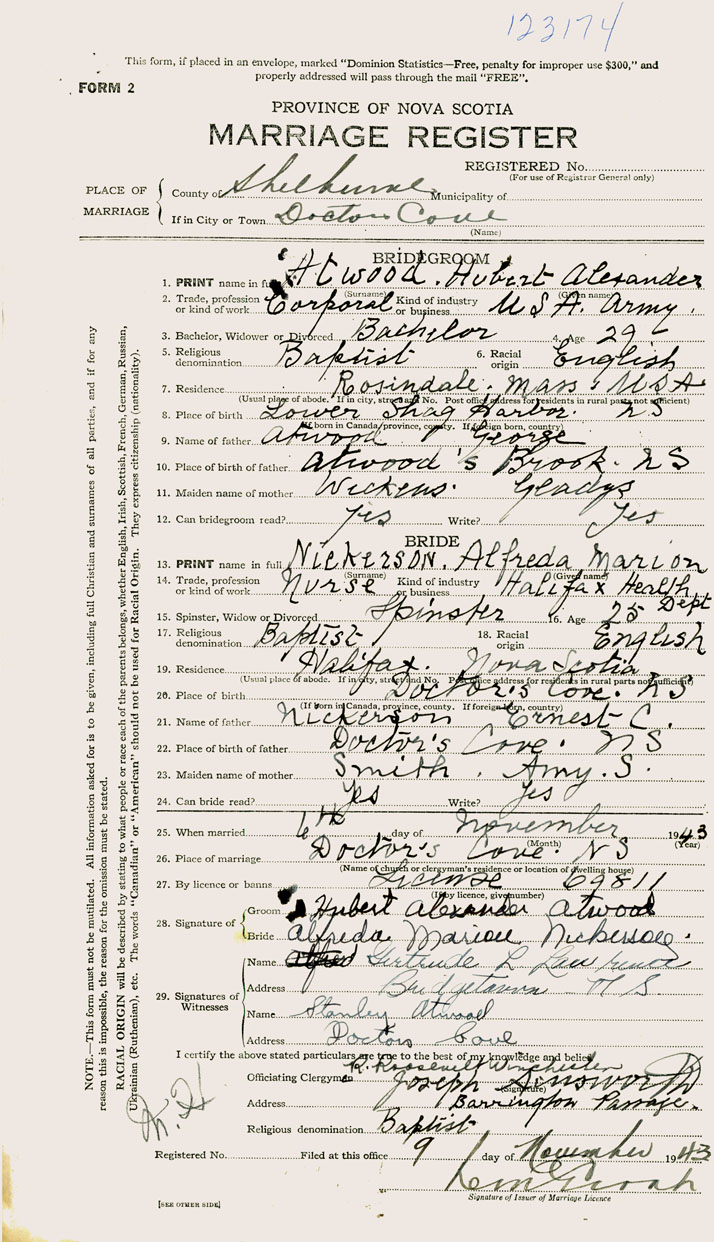 123174
This form, if placed in an envelope, marked "Dominion Statistics—Free, penalty for improper use $300," and
properly addressed will pass through the mail "FREE".
FORM 2
PROVINCE OF NOVA SCOTIA
MARRIAGE REGISTER
REGISTERED No.
(For use of Registrar General only)
PLACE OF MARRIAGE
County of Shelburne Municipality of
If in City or Town Doctors Cove
(Name)
BRIDEGROOM
1. PRINT name in full Atwood, Hubert Alexander
(Surname) (Given name)
2. Trade, profession or kind of work Corporal Kind of industry or business USA. Army.
3. Bachelor, Widower or Divorced Bachelor 4. Age 29
5. Religious denomination Baptist 6. Racial origin English
7. Residence Rosindale. Mass. USA
(Usual place of abode. If in city, street and No. Post office address for residents in rural parts not sufficient)
8. Place of birth Lower Shag Harbor. NS
(If born in Canada, province, county. If foreign born, country)
9. Name of father Atwood George
10. Place of birth of father Atwood's Brook. NS
11. Maiden name of mother Wickens. Gladys
12. Can bridegroom read? Yes Write? Yes
BRIDE
13. PRINT name in full Nickerson. Alfreda Marion
(Surname) (Given name)
14. Trade, profession or kind of work Nurse Kind of industry or business Halifax Health Dept
15. Spinster, Widow or Divorced Spinster 16. Age 25
17. Religious denomination Baptist 18. Racial origin English
19. Residence Halifax. Nova Scotia
(Usual place of abode. If in city, street and No. Post office address for residents in rural parts not sufficient)
20. Place of birth Doctor's Cove. NS
(If born in Canada, province, county. If foreign born, country)
21. Name of father Nickerson Ernest C.
22. Place of birth of father Doctor's Cove. NS
23. Maiden name of mother Smith. Amy. S.
24. Can bride read? Yes Write? Yes
25. When married 6th day of November 1943
(Month) (Year)
26. Place of marriage Doctor's Cove. NS
(Name of church or clergyman's residence or location of dwelling house)
27. By licence or banns License 69811
(If by licence, give number)
28. Signature of
Groom Hubert Alexander Atwood
Bride Alfreda Marion Nickerson.
29. Signatures of Witnesses
Name Gertrude L Lawrence
Address Bridgetown N S
Name Stanley Atwood
Address Doctors Cove
I certify the above stated particulars are true to the best of my knowledge and belief
R. Roosevelt Winchester
Officiating Clergyman Joseph
(Signature)
Address Barrington Passage.
Religious denomination Baptist
Registered No. Filed at this office 9 day of November 1943
Signature of Issuer of Marriage Licence
[SEE OTHER SIDE]
NOTE.—This form must not be mutilated. All information asked for is to be given, including full Christian and surnames of all parties, and if for any
reason this is impossible, the reason for the omission must be stated.
RACIAL ORIGIN will be described by stating to what people or race each of the parents belongs, whether English, Irish, Scottish, French, German, Russian,
Ukrainian (Ruthenian), etc. The words "Canadian" or "American" should not be used for Racial Origin. They express citizenship (nationality).